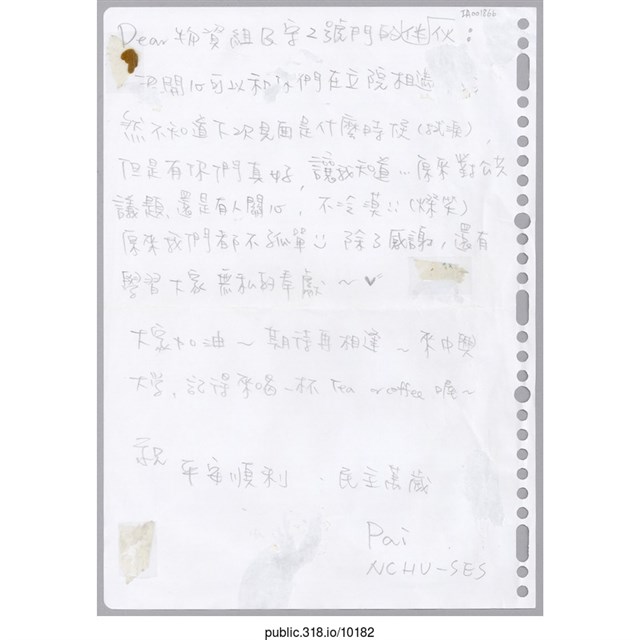 Dear 物資組 B 字 2 號門的迷仔:
很開心可以和你們在立院相遇
然不知道下次見面是什麼時候(拭淚),
但是有你們真好,讓我知道…原來對公共
議題,還是有人關心,不冷漠!!(燦笑)
原來我們都不孤單:) 除了感謝,還有
學習大家無私的奉獻~
大家加油~期待再相逢~來中興
大學,記得來喝一杯 Tea or coffee 喔~
祝
平安順利 民主萬歲
Pai
NCHU-SES
public.318.io/10182